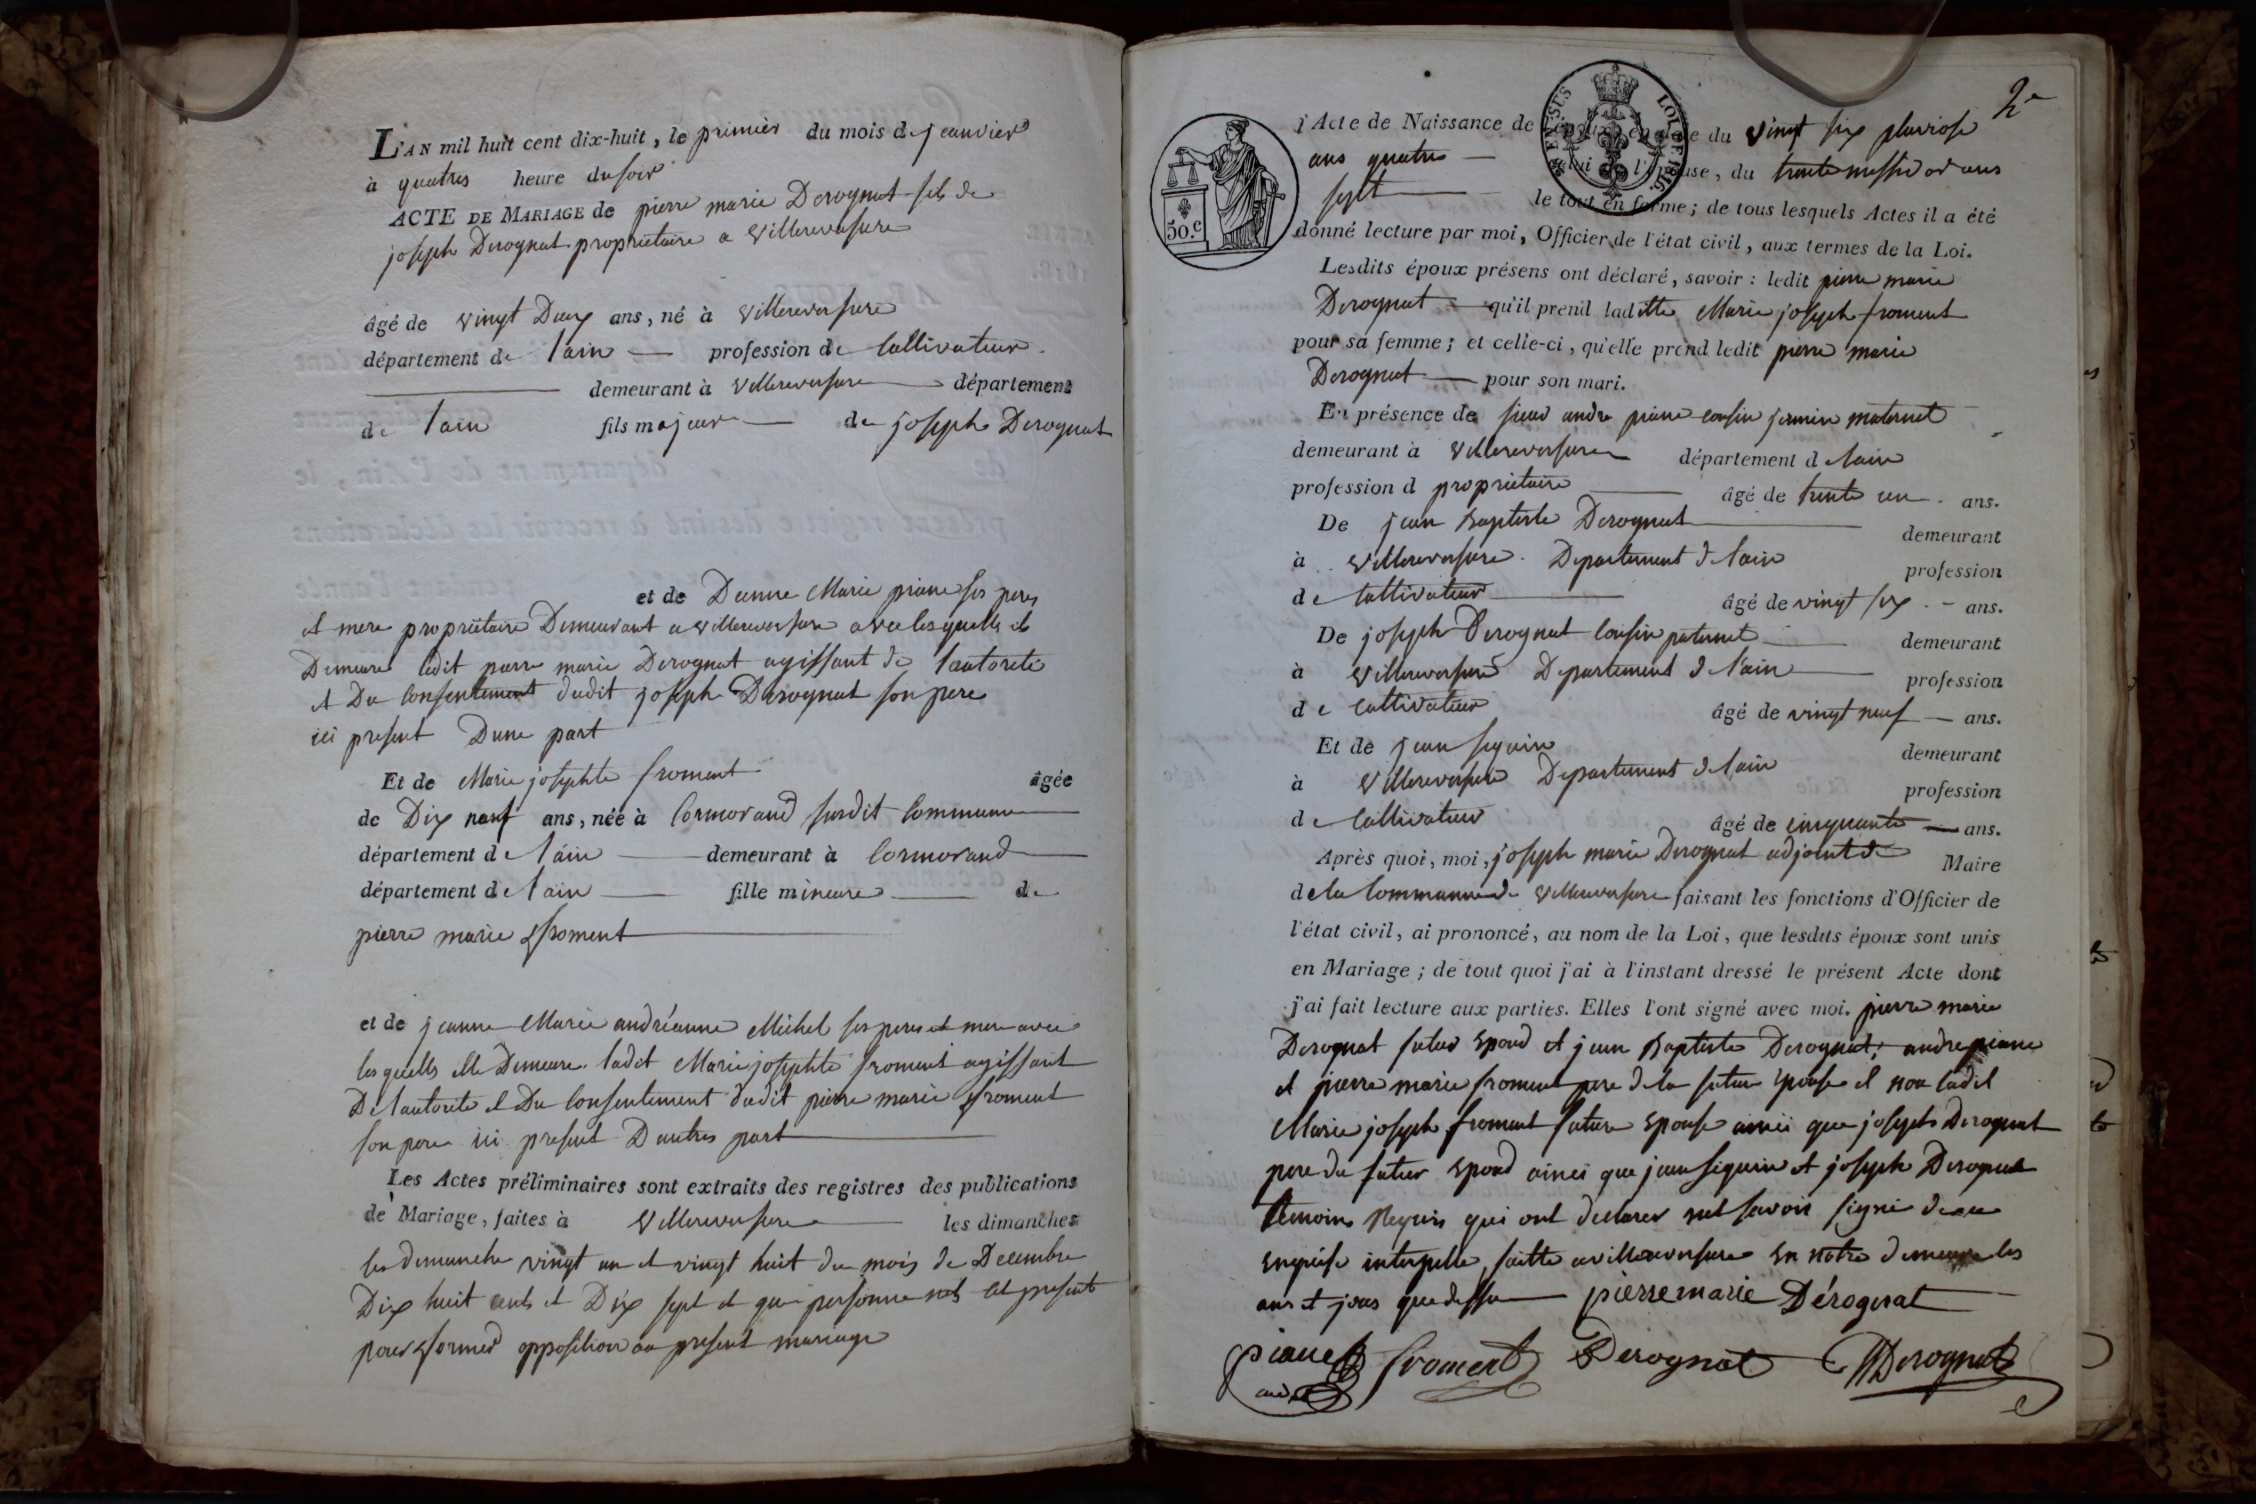 L'AN mil huit cent dix-huit, le premier du mois de jeanvier
à quatres heure du soir
ACTE DE MARIAGE de pierre marie Derognat fils de
joseph Derognat propriétaire a Villereversure
âgé de vingt Deux ans, né à Villereversure
département de lain profession de Cultivateur
demeurant à Villereversure département
de lain fils majeur de joseph Derognat
et de Marie piane ses peres
et mere propriétaire Demeurant a villereversure avec lesquells il
Demeure ledit pierre marie Derognat agissant de lautorete
et Du Consentement dudit joseph Derognat son pere
ici present Dune part
Et de Marie josephte froment âgée
de Dix neuf ans, née à Cormorand susdit Commune
département de lain demeurant à Cormorand
département de lain fille mineure de
pierre marie froment
et de jeanne Marie andréanne Michel ses peres et mere avec
lesquells elle Demeure. ladit Marie josephte froment agissant
De lautorite et Du Consentement dudit pierre marie froment
son pere ici present Dautres part
Les Actes préliminaires sont extraits des registres des publications
de Mariage, faites à Villereversure les dimanches
les dimanche vingt un et vingt huit du mois de Decembre
Dix huit cents et Dix sept et que personne nest set présente
pour former opposition au present mariage
2e
l'Acte de Naissance de l'époux en date du vingt six pluviose
ans quatres celui de l'épouse, du trente messidor ans
sept le tout en forme; de tous lesquels Actes il a été
50.c
LOI DE 1816.
donné lecture par moi, Officier de l'état civil, aux termes de la Loi.
Lesdits époux présens ont déclaré, savoir: ledit pierre marie
Derognat qu'il prend laditte Marie joseph froment
pour sa femme; et celle-ci, qu'elle prend ledit pierre marie
Derognat pour son mari.
En présence de sieur andre piane cousin jermin maternel
demeurant à Villereversure département de lain
profession d propriétaire âgé de trente un ans.
De jean Baptiste Derognat demeurant
à Villereversure. Departement de lain profession
de Cultivateur âgé de vingt six ans.
De joseph Derognat Cousin paternel demeurant
à Villereversure Departement de l'ain profession
de Cultivateur âgé de vingt neuf ans.
Et de jean seguin demeurant
à Villereversure Departement de lain profession
de Cultivateur âgé de cinquante ans.
Après quoi, moi, joseph marie Derognat adjoint de Maire
de la Commune de Villereversure faisant les fonctions d'Officier de
l'état civil, ai prononcé, au nom de la Loi, que lesdits époux sont unis
en Mariage; de tout quoi j'ai à l'instant dressé le présent Acte dont
j'ai fait lecture aux parties. Elles l'ont signé avec moi. pierre marie
Derognat futur Epoud et jean Baptiste Derognat, andre piane
et pierre marie froment pere de la future Epouse et non ladit
Marie joseph froment future Epouse ainsi que joseph Derognat
pere du futur Epoud ainci que jean seguin et joseph Derognat
temoins Requis qui ont declarer net savoir signé de ce
Enquis interpelle, faitte a villereversure En notre demeure les
ans et jours que dessu pierre marie Dérognat
piane andré froment Derognat Derognat